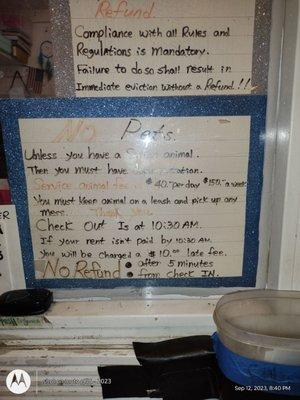 Refund
Compliance with all Rules and
Regulations is Mandatory.
Failure to do so shall result in
Immediate eviction without a Refund!!
No Pets.
Unless you have a animal.
Then you must have
Service animal fee $40.00 per day $150.00 a week
You must keep animal on a leash and pick up any
mess. Thank you
Check Out Is at 10:30 AM.
If your rent isn't paid by 10:30 AM.
You will be charged a $10.00 late fee.
No Refund after 5 minutes
from Check IN.
Sep 12, 2023, 8:40 PM